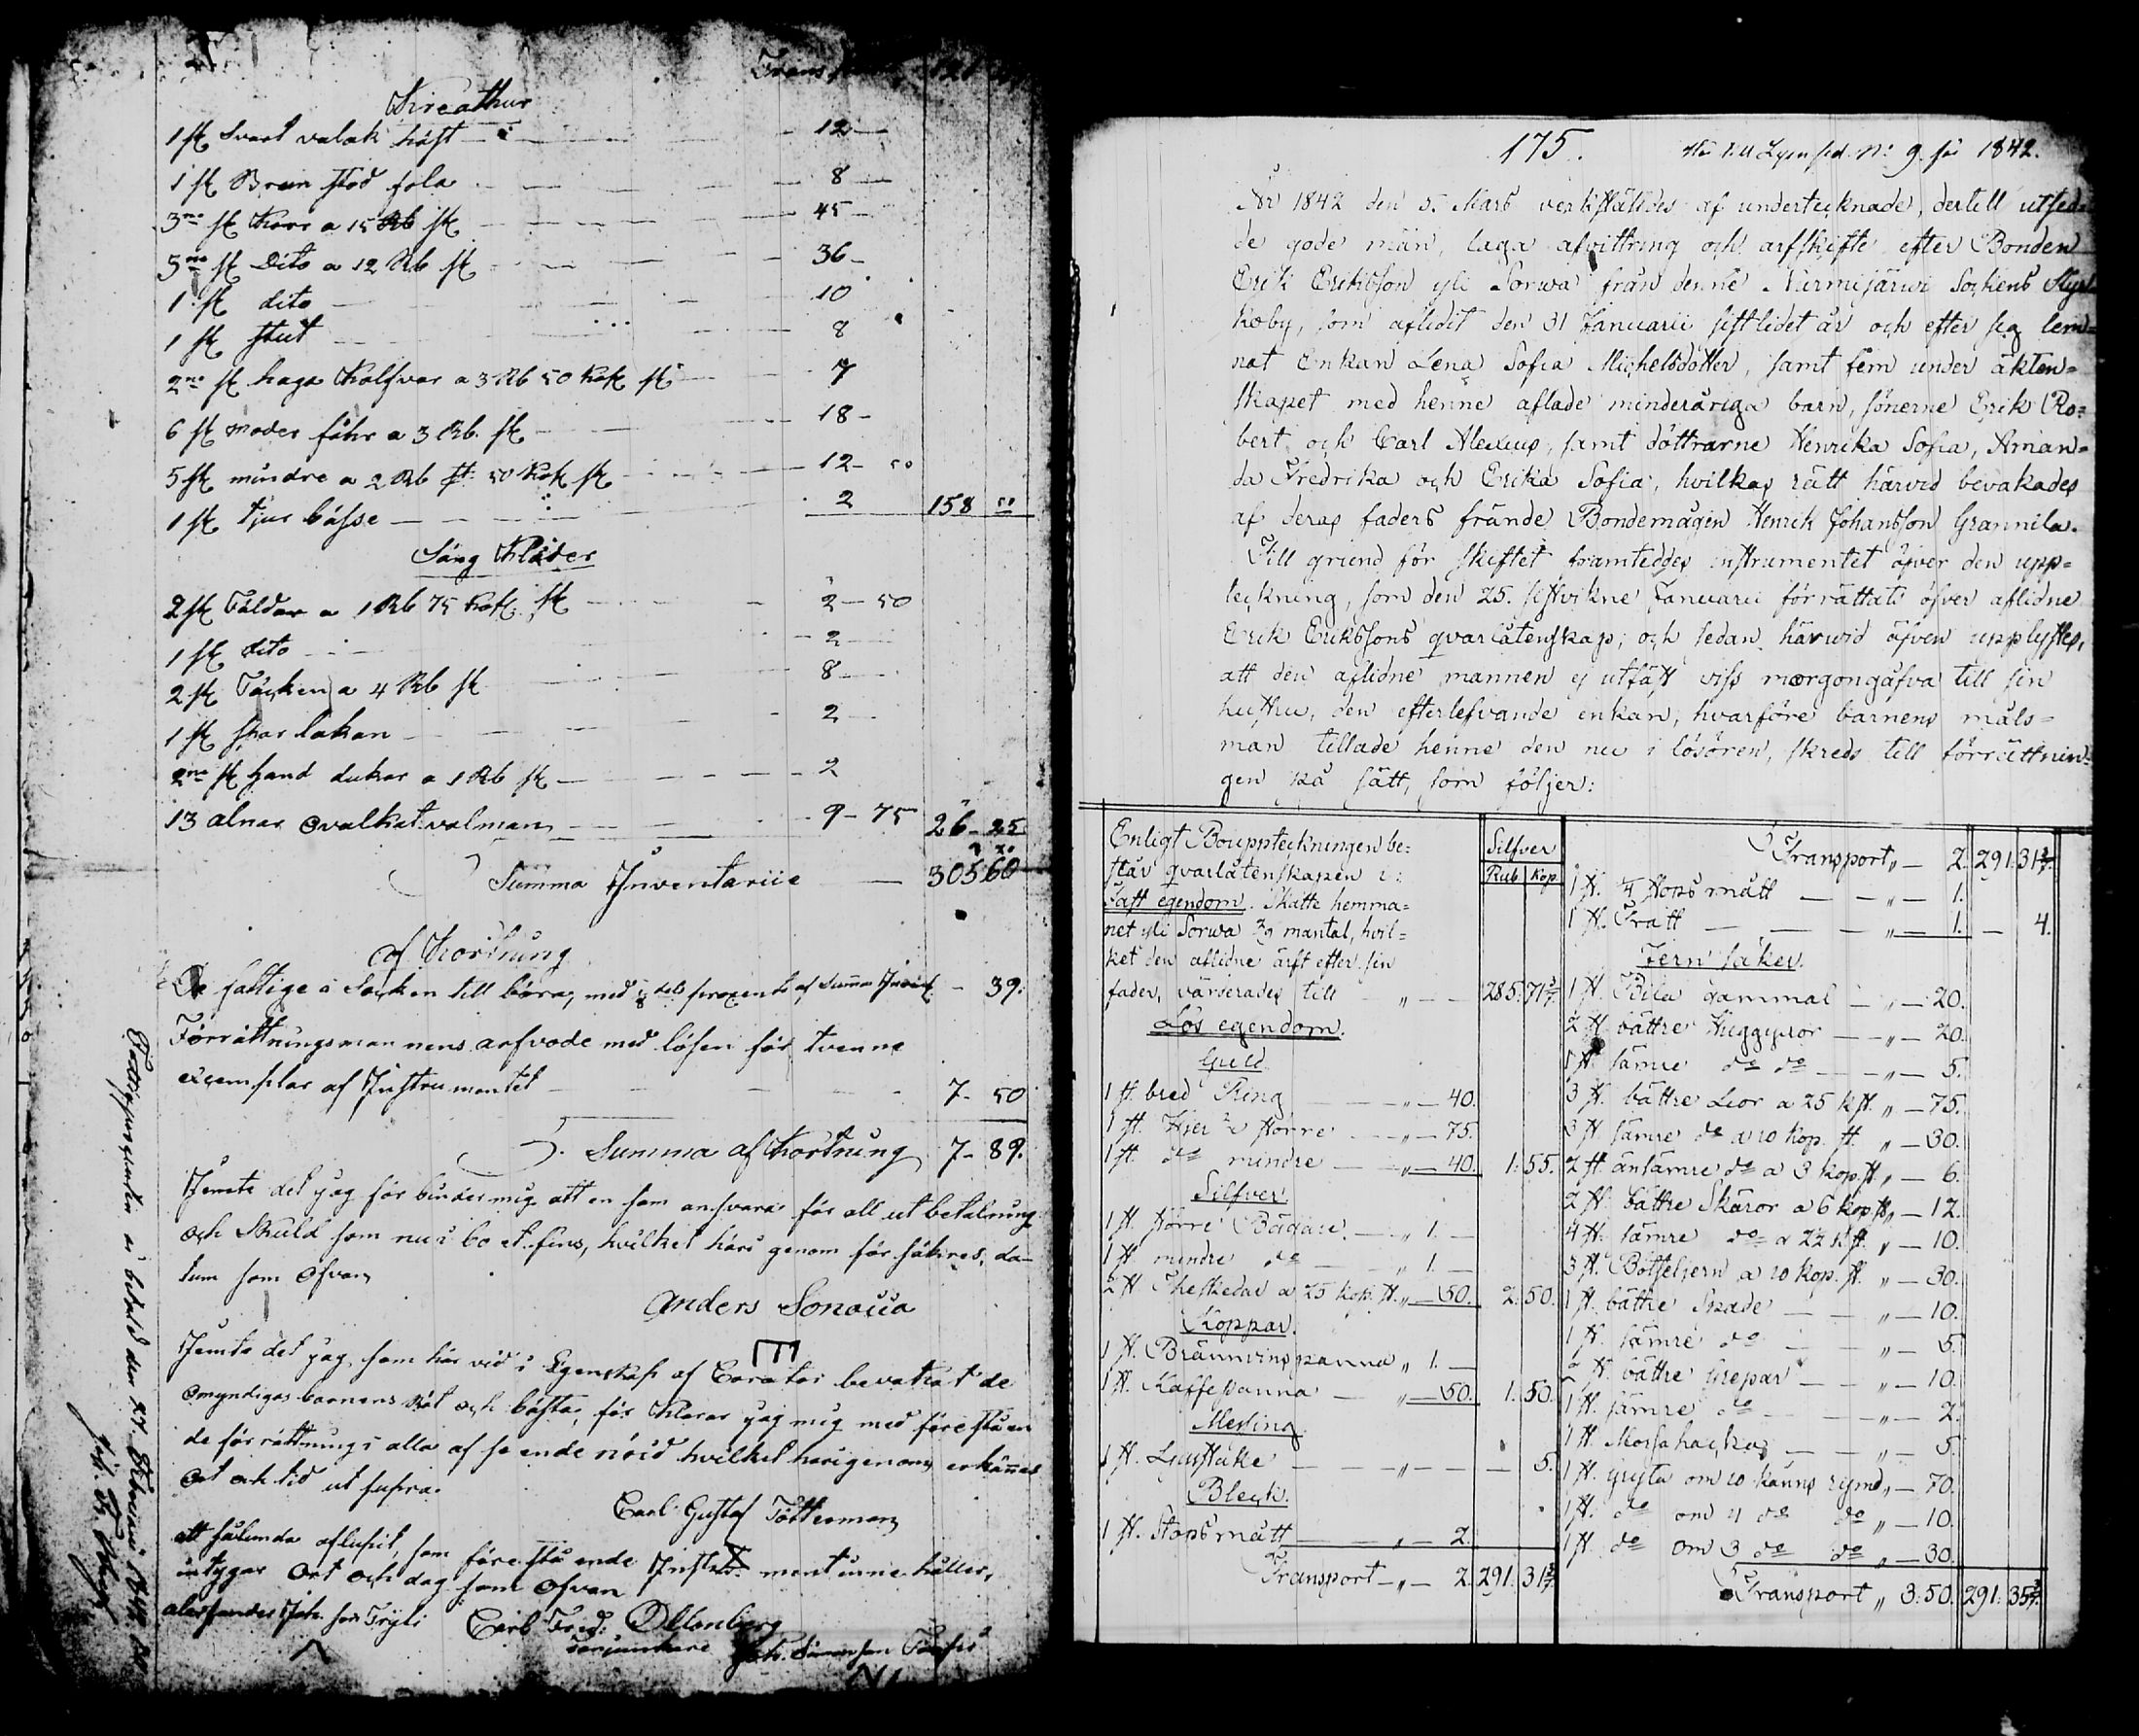 Kreathur
1 st Svart valak häst — 12 —
1 st Brun stod fola — 8 —
3ne st Koor a 15 Rb st — 45 —
3ne st Dito a 12 Rb st — 36 —
1 st dito — 10
1 st stut — 8
2ne st haga Kalfvar a 3 Rb 50 Kok st — 7
6 st moder fåhr a 3 Rb. st — 18 —
5 st mindre a 2 Rb 50 Kok st — 12 — 50
1 st tjur båsse — 2 158 50
Säng Kläder
2 st Fäldar a 1 Rb 75 Kok st — 2 — 50
1 st dito — 2 —
2 st Täcken a 4 Rb st — 8 —
1 st lakan — 2 —
2ne st Hand dukar a 1 Rb st — 2
13 alnar ovalkat valman — 9 — 75 26 — 25
Summa Inventariie — 305 60
af Kortnung
De fattige i Socken till böra, med 1/8 dels procent af Summa — 39.
Förrättningsman nens arfvode med lösen för tvenne
exemplar af Instrumentet — 7 — 50
S. Summa af Kortnung 7 — 89.
Jemte det jag för binder mig att en sam ansvara för all ut betalning
och Skuld som nu i bo et fins, hvilket häri genom för säkres, da-
tum som ofvan
Anders Sonacca
Jemte det jag, som här vid i Egenskap af Curator bevakat de
omyndigas barnens rät och bästa, för klarar jag mig med före stå en
de för rättning i alla af se ende nöid hvilket harigenom erkännes
Ort och tid ut supra.
Carl Gustaf Tötterman
att sålunda aflupit, som före stå ende Instru ment inne håller,
intygar Ort och dag som ofvan
Carl Fred: Ollonberg
den 27 Februari 1842
175.
N: 9 för 1842.
År 1842 den 5. Mars verkställtides af undertecknade, dertill utsed-
de gode män, laga afvittring och arfskifte efter Bonden
Erik Eriksson yli Sorwa från denne Nurmijärwi Sockens
koby, som aflidit den 31 Januarii sistlidet år och efter sig lem=
nat Enkan Lena Sofia Michelsdotter, samt fem under äkten=
skapet med henne aflade minderåriga barn, sönerne Erik Ro=
bert och Carl Alexius, samt döttrarne Henrika Sofia, Aman=
da Fredrika och Erika Sofia, hvilkas rätt härvid bevakades
af deras faders frände Bondemågen Henrik Johansson Grannila.
Till grund för skiftet framteddes instrumentet öfver den upp=
teckning, som den 25. sistvikne Januarii förrättats öfver aflidne
Erik Erikssons qvarlåtenskap; och sedan härwid äfven upplystes,
att den aflidne mannen ej utfäst viss morgongåfva till sin
husthru, den efterlefvande enkan, hvarföre barnens måls=
man tillade henne den nu i lösören, skreds till förrättnin=
gen på sätt, som följer:
Enligt Bouppteckningen be=
står qvarlåtenskapen i:
Silfver
Rub Kop
Fast egendom. Skatte hemma=
net yli Sorwa 2/9 mantal, hvil=
ket den aflidne ärft efter sin
fader, värderades till — „ — — 285. 71 3/7
Lös egendom.
Guld.
1 st. bred Ring — „ — 40.
1 st. större — „ — 75.
1 st. do mindre — „ — 40. 1. 55.
Silfver.
1 st. större Bägare — „ 1. —
1 st. mindre do — „ 1. —
2 st. Theskedar a 25 kop. st. „ — 50. 2. 50.
Koppar.
1 st. Bränvinspanna „ 1. —
1 st. Kaffepanna — „ — 50. 1. 50.
Messing.
1 st. Ljusstake — „ — — 5.
Bleck.
1 st. Stopsmått — „ — 2.
Transport — „ — 2. 291. 31 3/7
Transport „ — 2. 291. 31 3/7
1 st. 1/4 Stops mått — „ — 1.
1 st. Tratt — „ — 1. — 4.
Jern saker.
1 st. Bila gammal — „ — 20.
2 st. bättre Huggyxor — „ — 20.
1 st. sämre do do — „ — 5.
3 st. bättre Lior a 25 k st. „ — 75.
3 st. sämre do a 10 kop. st. „ — 30.
2 st. än sämre do a 3 kop. st „ — 6.
2 st. bättre Skäror a 6 kop. st „ — 12.
4 st. sämre do a 2 1/2 k st. „ — 10.
3 st. Bötteljern a 10 kop. st. „ — 30.
1 st. bättre Spade — „ — 10.
1 st. sämre do — „ — 5.
2 st. bättre Grepar — „ — 10.
1 st. sämre do — „ — 2.
1 st. Mossahacka — „ — 5.
1 st. gryta om 10 kanns rymd „ — 70.
1 st. do om 4 do do „ — 10.
1 st. do om 3 do do „ — 30.
Transport „ 3. 50. 291. 35 3/7